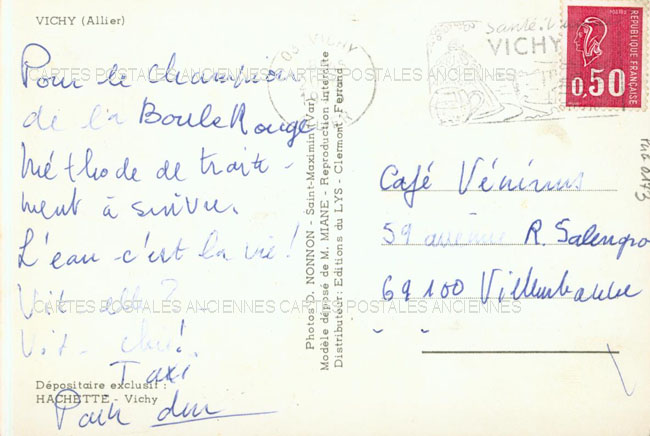 VICHY (Allier)
Pour le champion
de la Boule Rouge
Méthode de traite-
ment à suivre.
L'eau c'est la vie!
Vit
Vit-
Taxi
Dépositaire exclusif :
HACHETTE - Vichy
Photos D. NONNON - Saint-Maximin (Var)
Modèle déposé de M. MIANE - Reproduction interdite
Distributeur : Editions du LYS - Clermont-Ferrand
VICHY
REPUBLIQUE FRANÇAISE
POSTES
0,50
Café
59 R. Salengro
69100 Villeurbanne
CARTES POSTALES ANCIENNES CARTES POSTALES ANCIENNES
CARTES POSTALES ANCIENNES CARTES POSTALES ANCIENNES